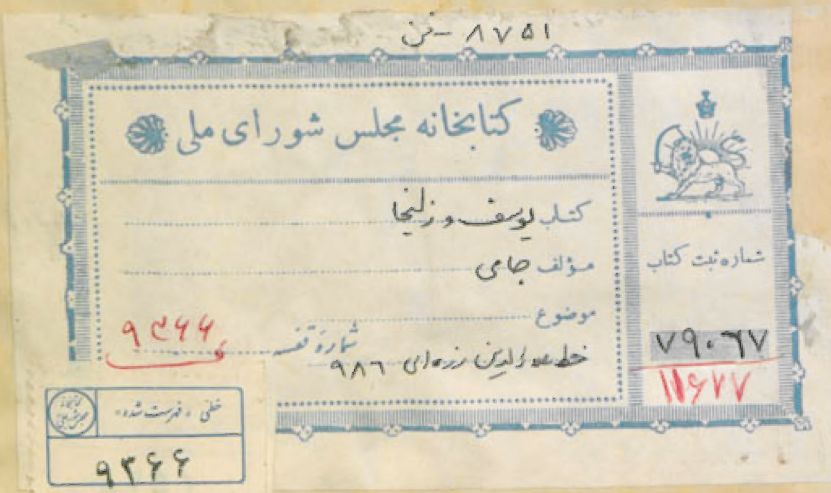 ۸۷۵۱ - فن
کتابخانه مجلس شورای ملی
کتاب یوسف و زلیخا
مؤلف جامی
موضوع
شمارهٔ قفسه
۹۳۶۶
خط
الدین
۹۸۶
شماره ثبت کتاب
۷۹۰۶۷
۱۱۶۷۷
خطی «فهرست شده»
۹۳۶۶